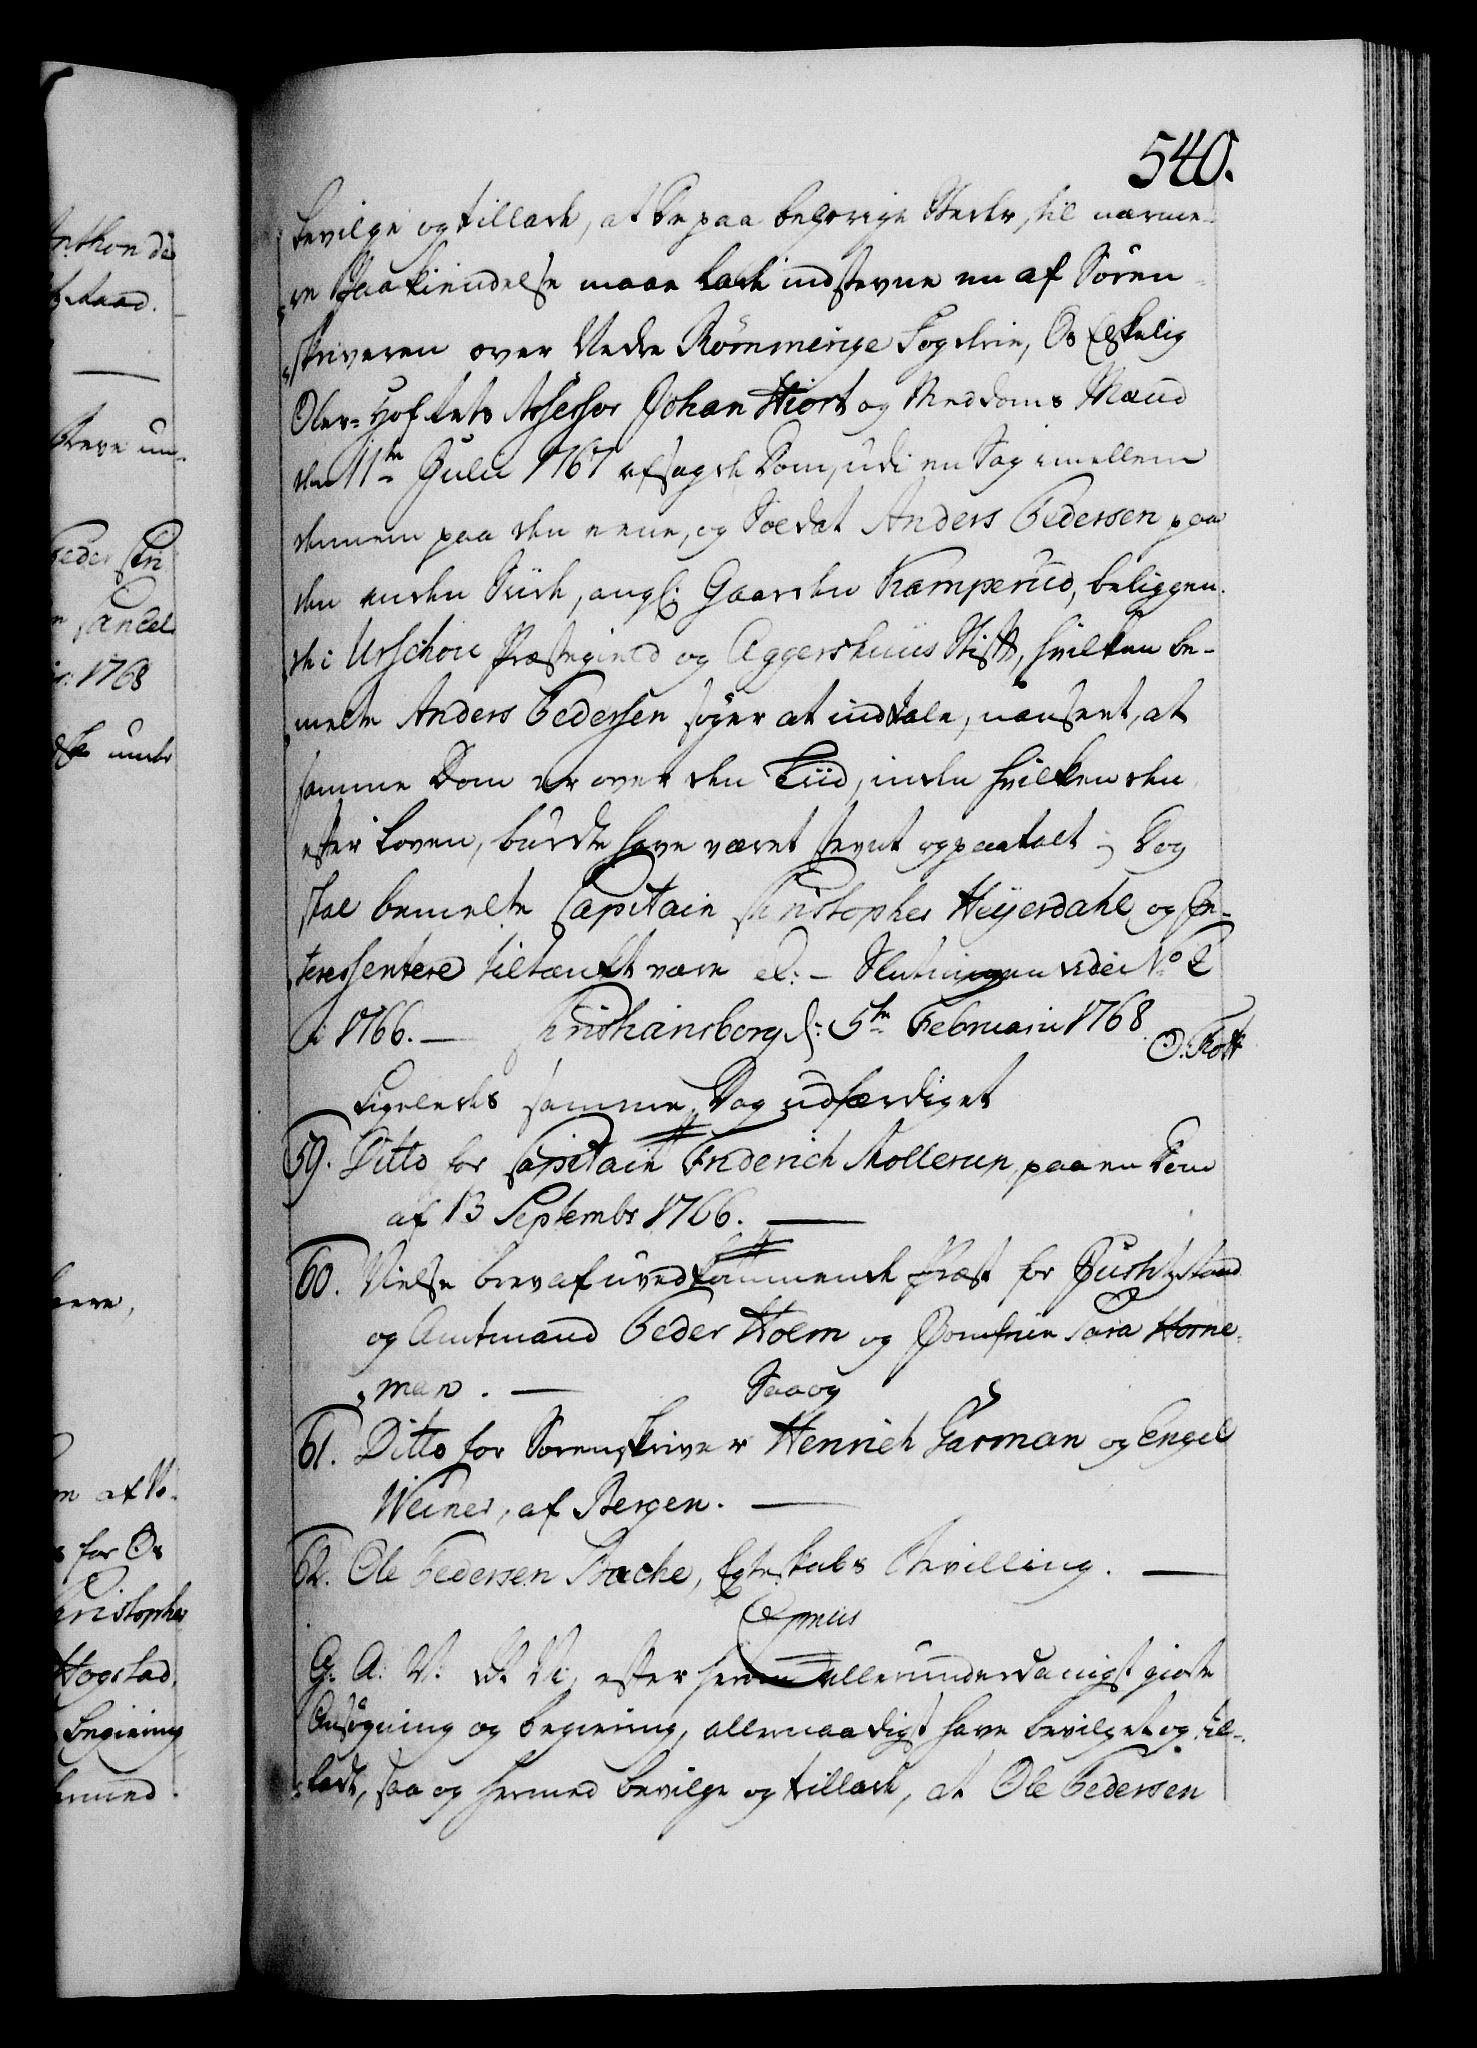 540.
bevilge og tillade, at De paa behörige Steder, til nærme-
re Paakiendelse maae lade indstevne en af Sören-
skriveren over Nedre Rommerige Fogderie, Os Elskelig
Ober-Hof Rets Assessor Johan Hiort og Meddoms Mænd
den 11te Julii 1767 afsagde Dom, udi en Sag imellem
dennem paa den eene, og Soldat Anders Pedersen paa
den anden Siide, angl: Gaarden Kamperud, beliggen-
de i Urschou Præstegield og Aggershuus Stift, hvilken be-
melte Anders Pedersen söger at indtale, uanseet, at
samme Dom er over den Tiid, inden hvilken den
efter Loven, burde have været stevnt og paatalt; Dog
skal bemelte Capitain Christopher Heyerdahl og In-
teressentere tiltænkt være etc: - Slutningen vide No 2
i 1766. — Christiansborg d: 5te Februarii 1768
O. Thott
Ligeledes samme Dag udfærdiget
59. Ditto for Capitain Friderich Mollerup, paa en Dom
af 13 Septembr 1766. —
60. Vielse brev af uvedkommende Præst for Justitzraad
og Amtmand Peder Holm og Jomfrue Sara Horne-
man. — Saa og
61. Ditto for Sorenskriver Henrich Garman og Engel
Weiner, af Bergen. —
62. Ole Pedersen Bache, Egteskabs Bevilling. —
Gratis
G. A. V. At Vi, efter herom allerunderdanigst giorte
Ansögning og begiering, allernaadigst have bevilget og til-
ladt, saa og hermed bevilge og tillade, at Ole Pedersen